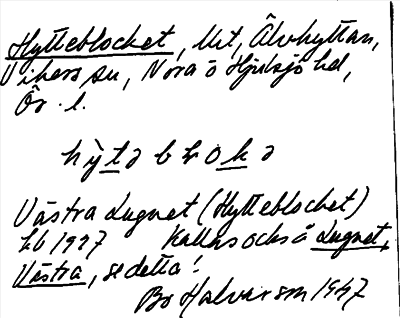 Hytteblocket, Mt, Älvhyttan,
Vikers sn, Nora o Hjulsjö hd,
Ör. l.
hỳtə blokə
Västra Lugnet (Hytteblocket)
hb 1937 Kallas också Lugnet,
Västra, se detta!
Bo Halvarson 1947